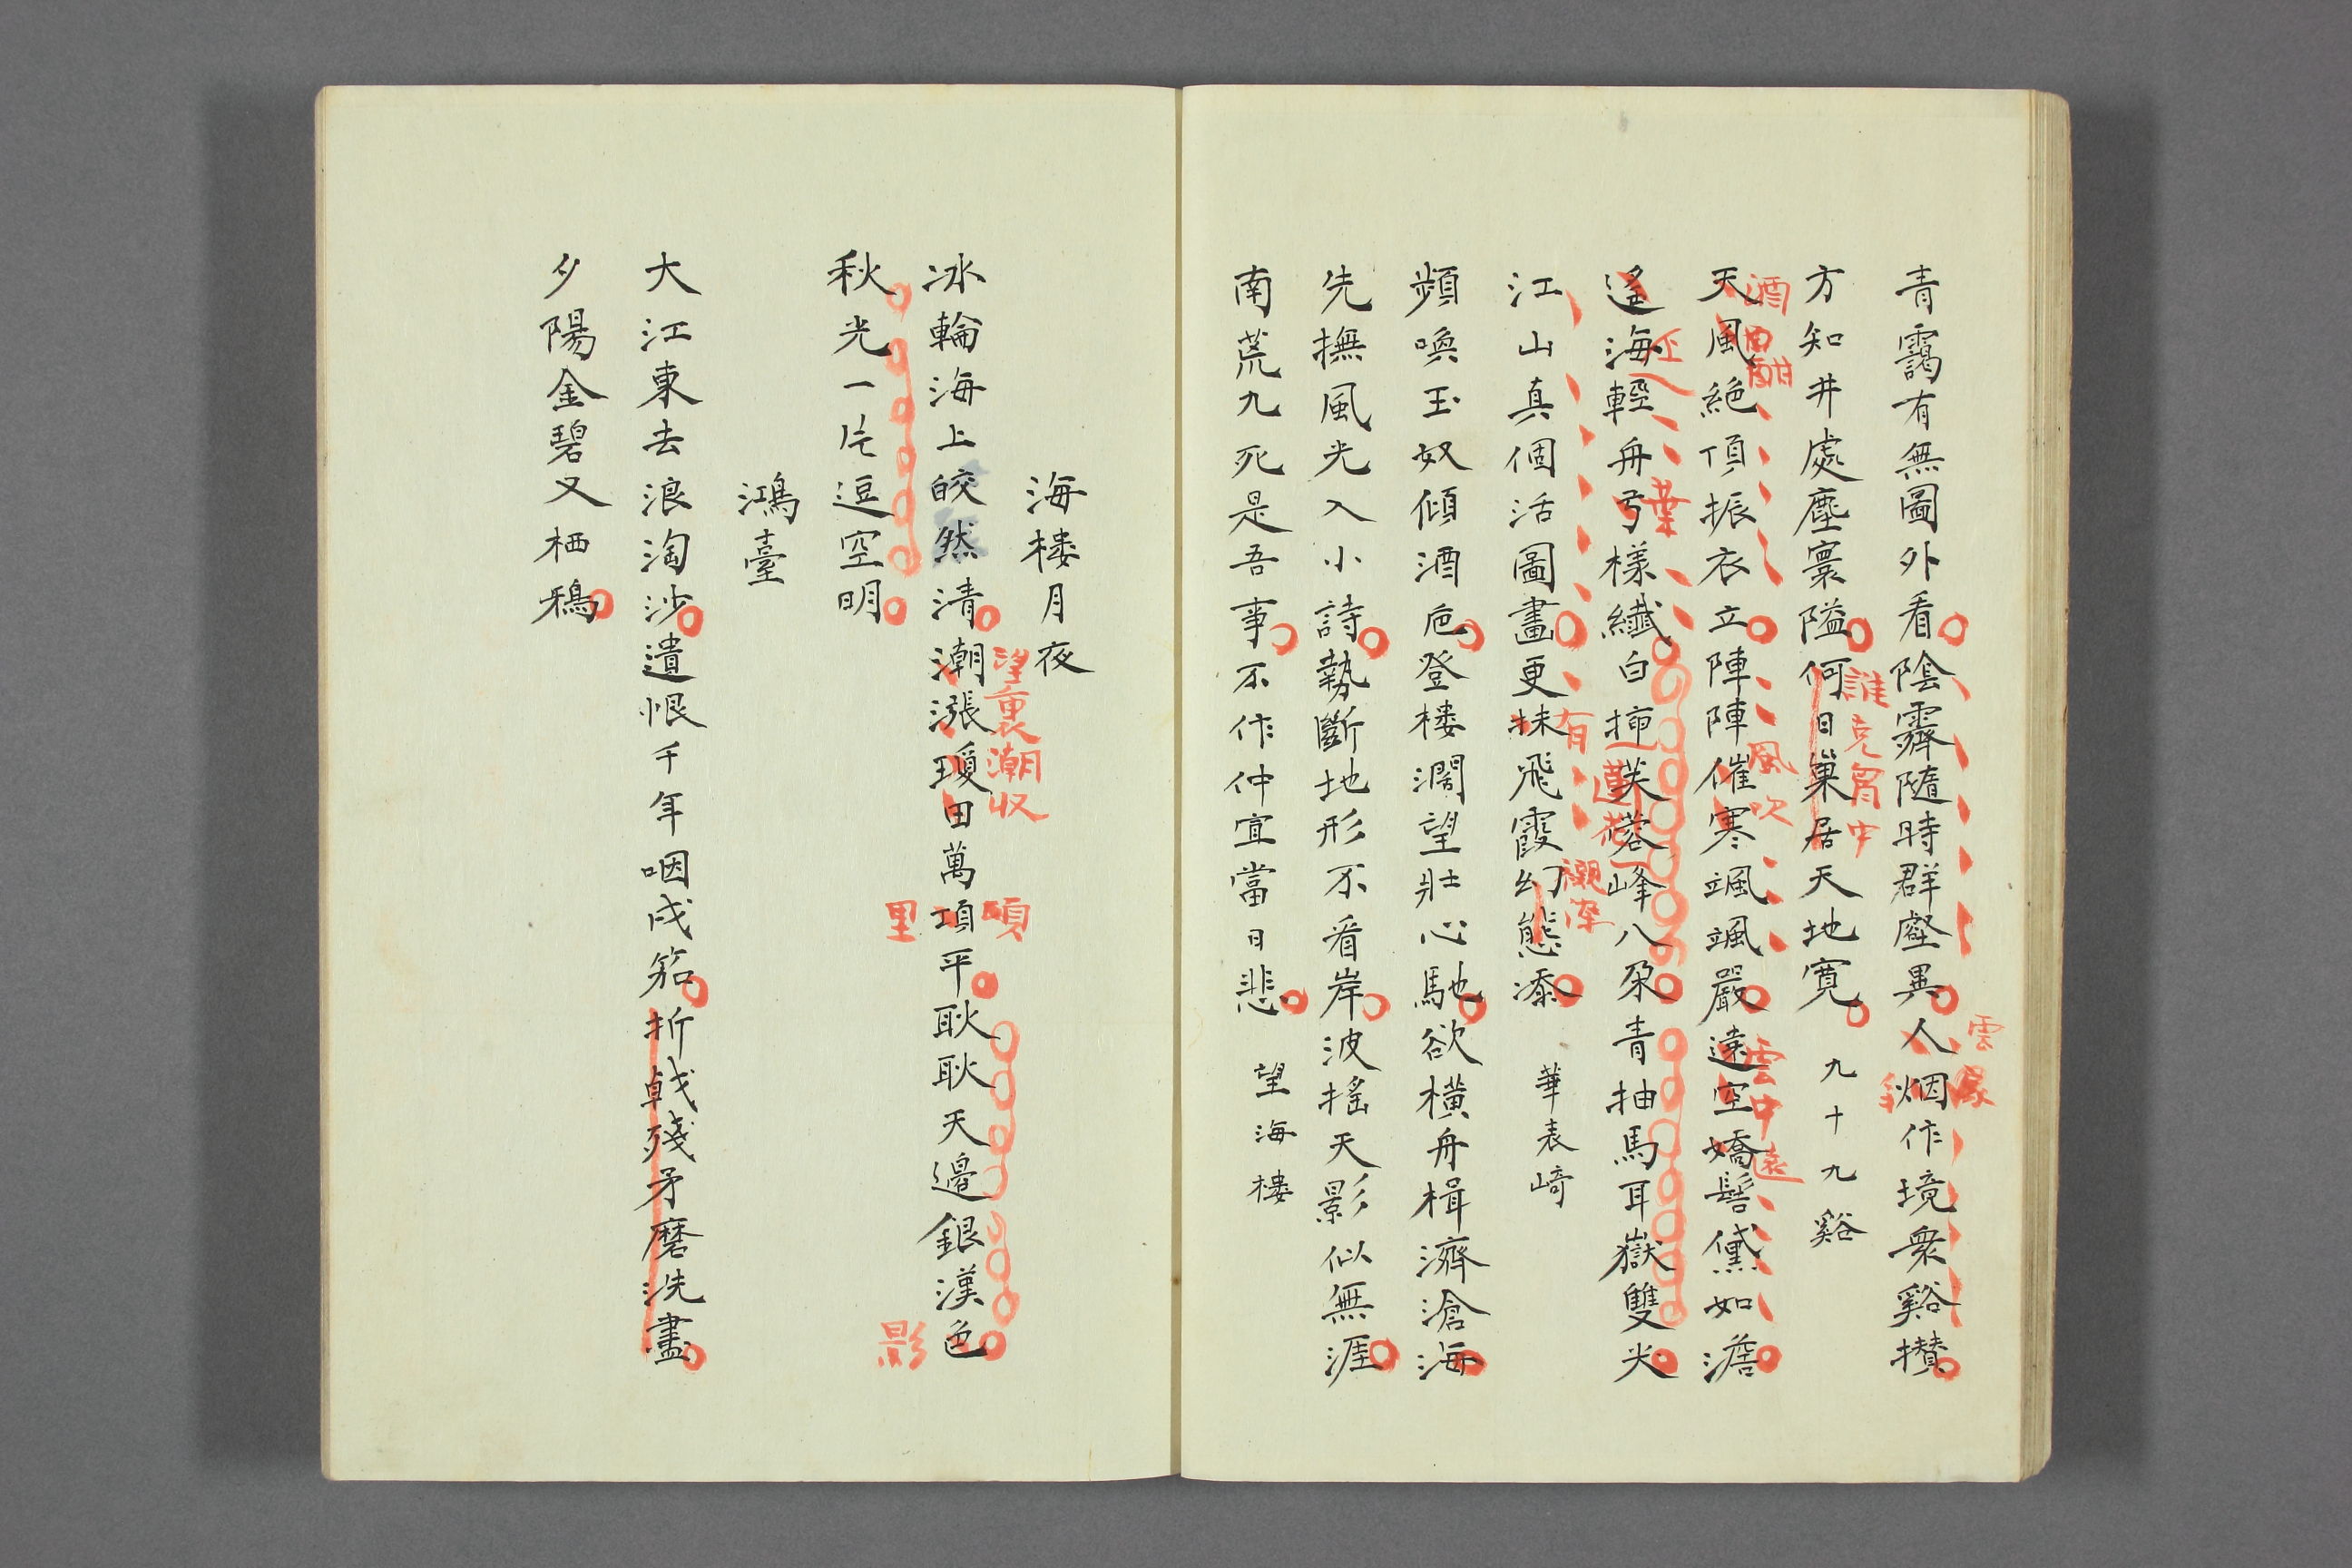 青靄有無圖外看陰霽隨時群壑異人烟作境衆谿攅
雲
方知井處塵寰隘何日巢居天地寛 九十九谿
誰克胷中
天風絶頂振衣立陣陣催寒颯颯嚴遠空嬌髻黛如澹
酒酣
風吹
雲中遠
遙海輕舟弓樣纖白揷芙蓉峰八朶青抽馬耳嶽雙尖
葉
蓮
江山真個活圖畫更抹飛霞幻態添 華表崎
有
頻喚玉奴傾酒巵登楼濶望壯心馳欲横舟楫濟滄海
先撫風光入小詩勢斷地形不看岸波搖天影似無涯
南荒九死是吾事不作仲宣當日悲 望海楼
海楼月夜
冰輪海上皎然清潮漲瓊田萬項平耿耿天邊銀漢色
望裏潮収
頃
里
影
秋光一片逗空明
鴻臺
大江東去浪淘沙遺恨千年咽戍笳折戟殘矛磨洗盡
夕陽金碧又栖鴉